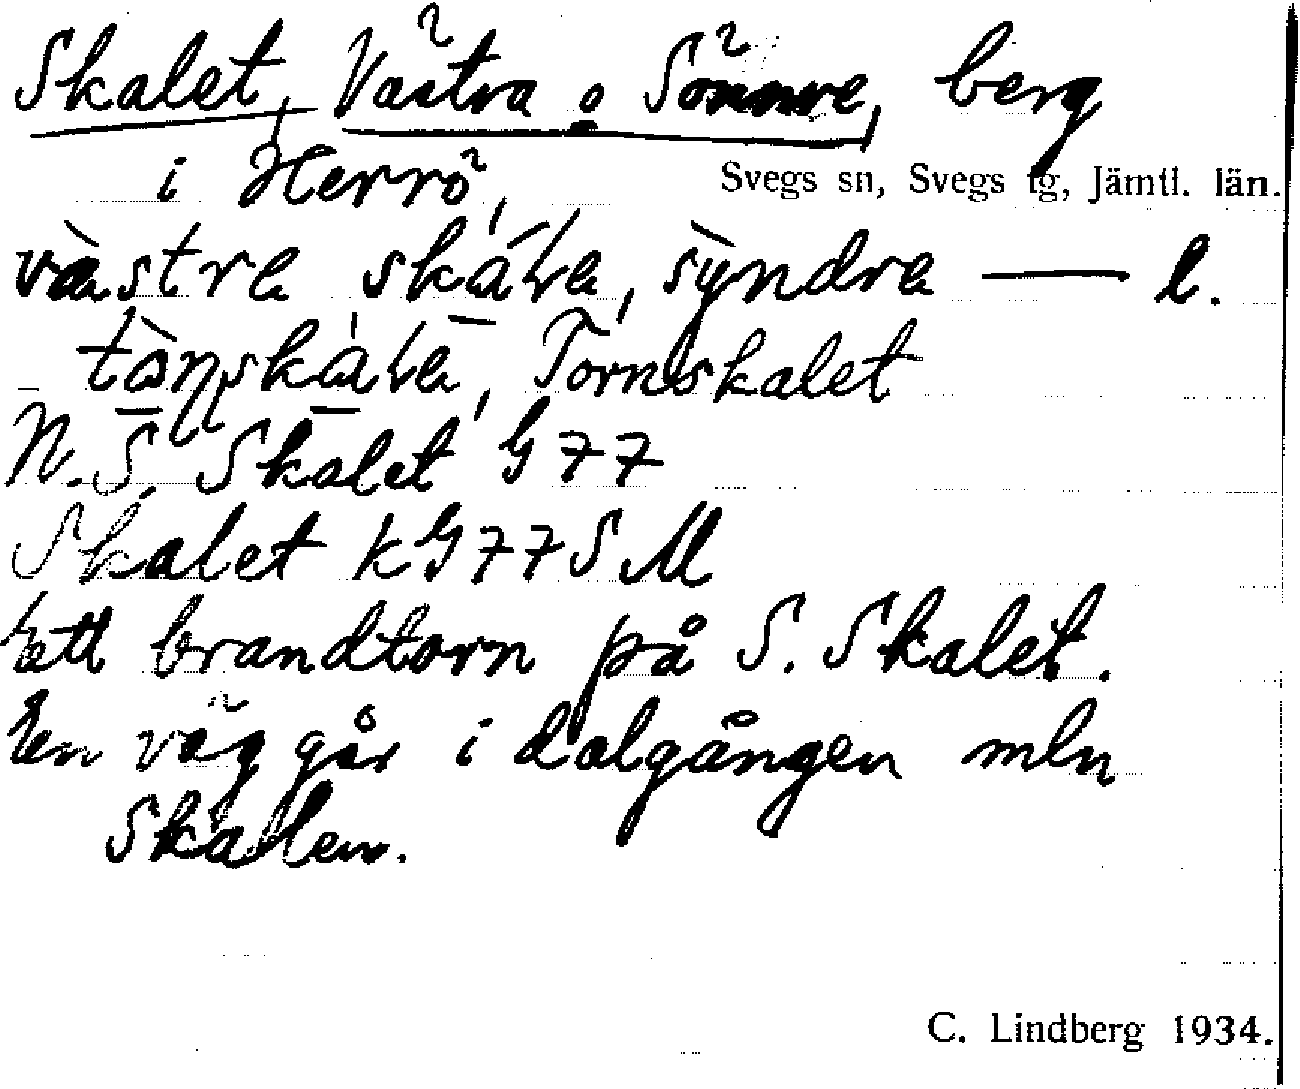 Skalet, Västra o Sönnre, berg
i Herrö,
Svegs sn, Svegs tg, Jämtl. län.
västra skálɐ, syndrɐ — l.
tònskàlɐ, Tornskalet
N. S. Skalet G77
Skalet kG77SM
Ett brandtorn på S. Skalet.
En väg går i dalgången mln
Skallen.
C. Lindberg 1934.